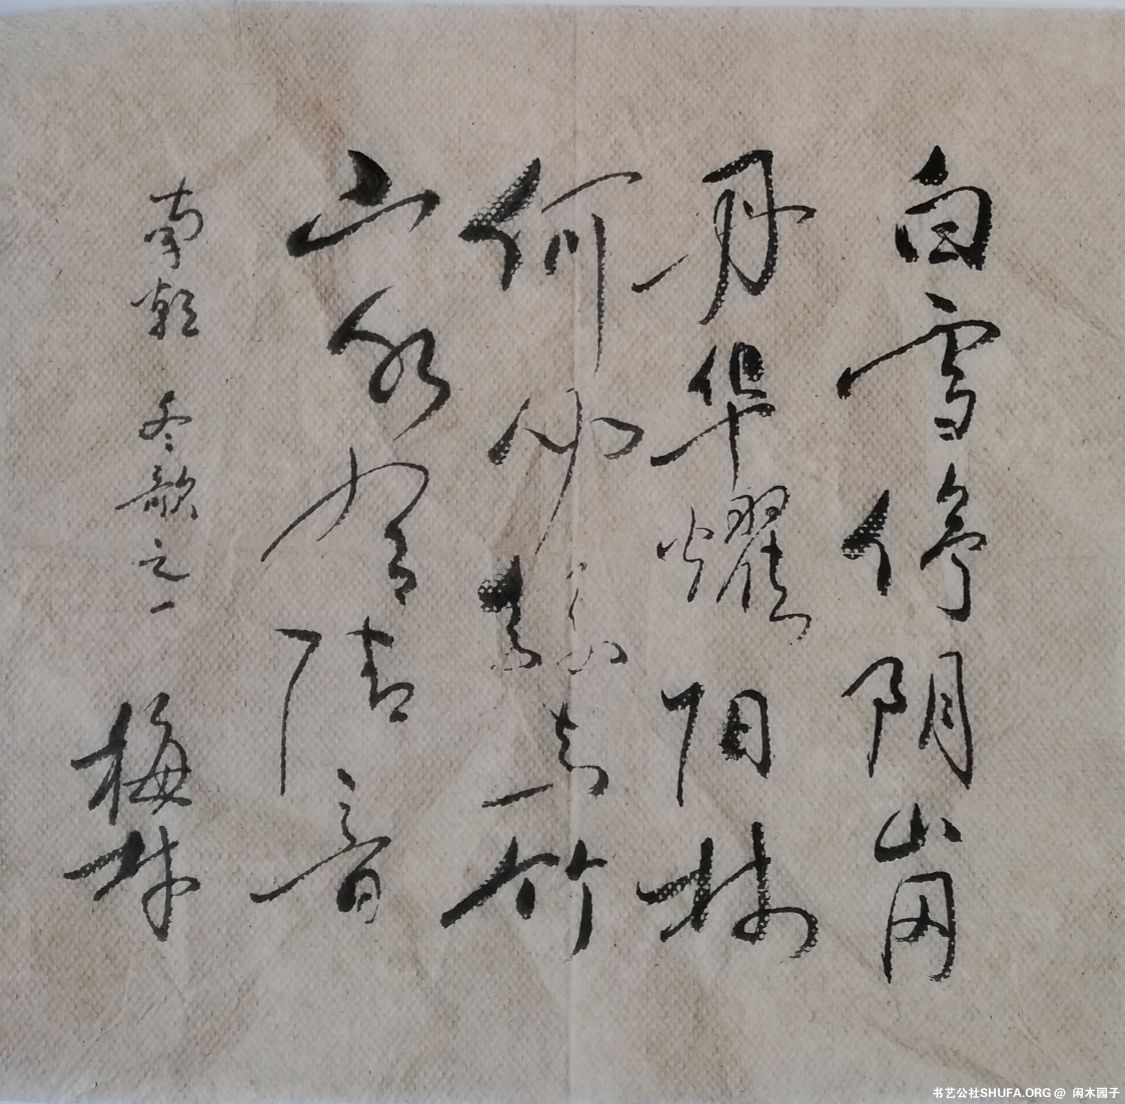 白雪停阴岗
丹华耀阳林
何必絲与竹
山水有清音
南朝 冬歌之一 梅村
书艺公社SHUFA.ORG @ 闲木园子